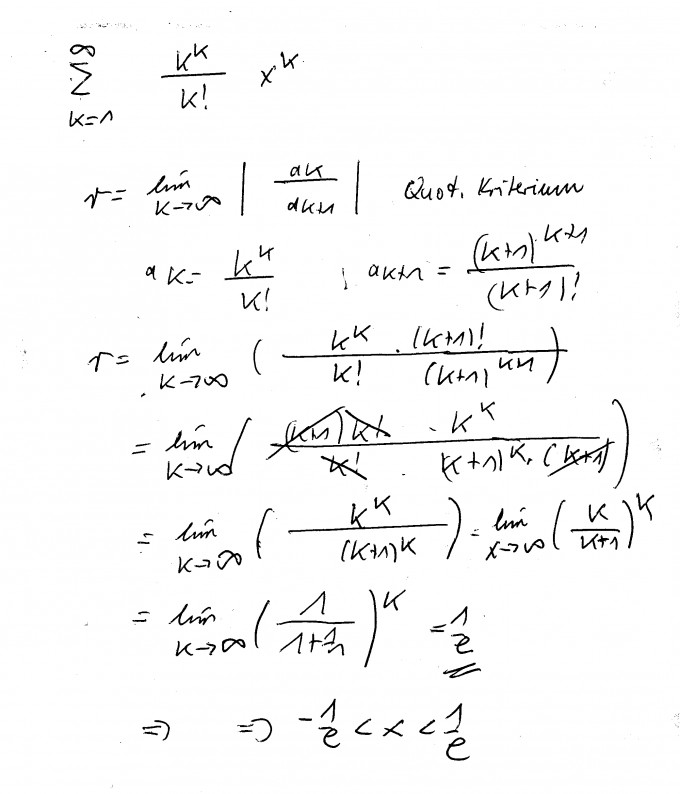 ∞
∑ k^k / k! x^k
k=1
r = lim k→∞ | ak / ak+1 | Quot. Kriterium
ak = k^k / k! ; ak+1 = (k+1)^k+1 / (k+1)!
r = lim k→∞ ( k^k / k! · (k+1)! / (k+1)^k+1 )
= lim k→∞ ( (k+1) k! · k^k / k! · (k+1)^k · (k+1) )
= lim k→∞ ( k^k / (k+1)^k ) = lim x→∞ ( k / k+1 )^k
= lim k→∞ ( 1 / 1+1/n )^k = 1/e
⇒ ⇒ -1/e < x < 1/e